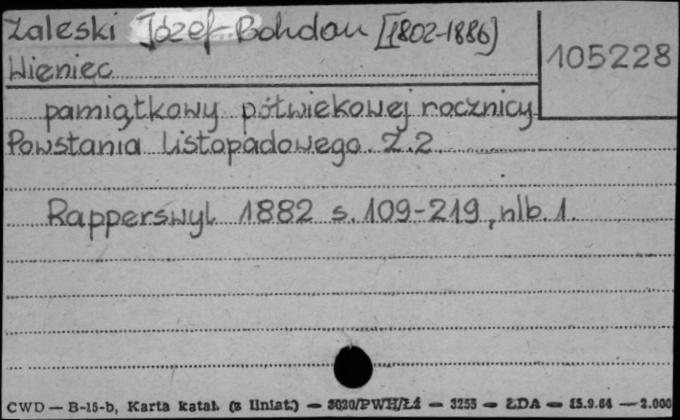 Zaleski Józef Bohdan [1802-1886]
105228
Wieniec
pamiątkowy półwiekowej rocznicy
Powstania Listopadowego. Z.2
Rapperswyl 1882 s. 109-219, nlb. 1.
CWD — B-15-b, Karta katal. (z liniat.) — 3020/PWH/Łź — 3253 — ŁDA — 15.9.64 — 2.000